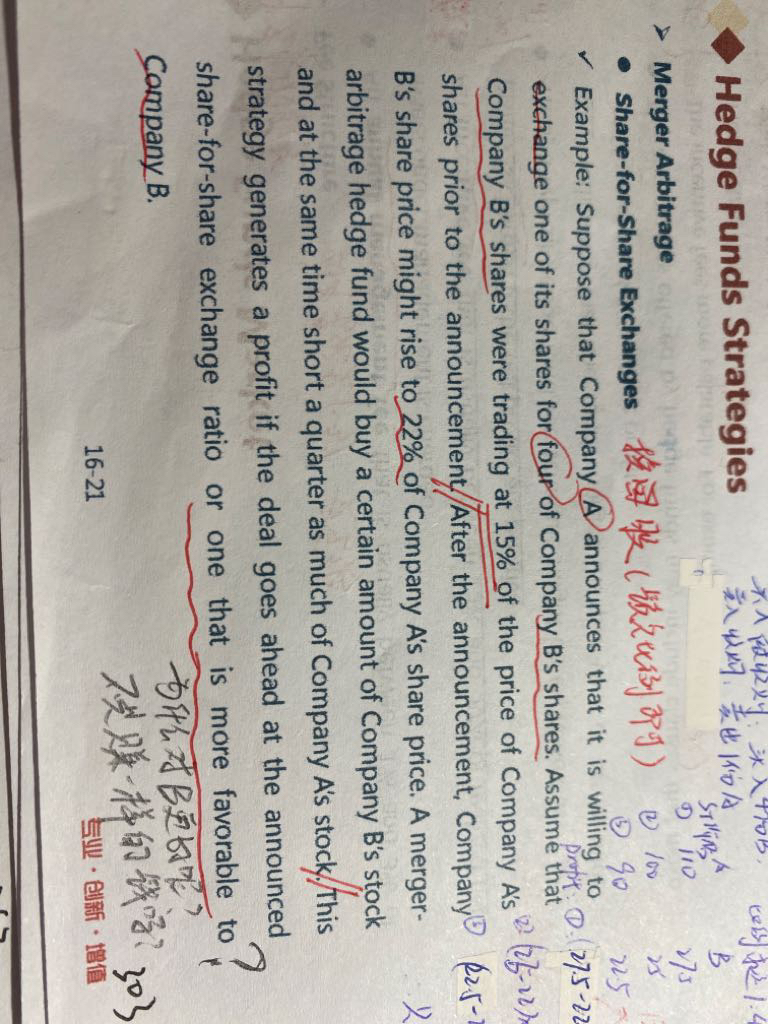 Hedge Funds Strategies
Merger Arbitrage
Share-for-Share Exchanges
换国股(

✓ Example: Suppose that Company A announces that it is willing to
exchange one of its shares for four of Company B's shares. Assume that
Company B's shares were trading at 15% of the price of Company A's
shares prior to the announcement. After the announcement, Company
B's share price might rise to 22% of Company A's share price. A merger-
arbitrage hedge fund would buy a certain amount of Company B's stock
and at the same time short a quarter as much of Company A's stock. This
strategy generates a profit if the deal goes ahead at the announced
share-for-share exchange ratio or one that is more favorable to
Company B.
16-21
专业·创新·增值
303
为什么对B更好呢?
不是赚一样的钱吗?
① 110 27.5
② 100 25
③ 90 22.5
A
B
profit: ①(27.5-22